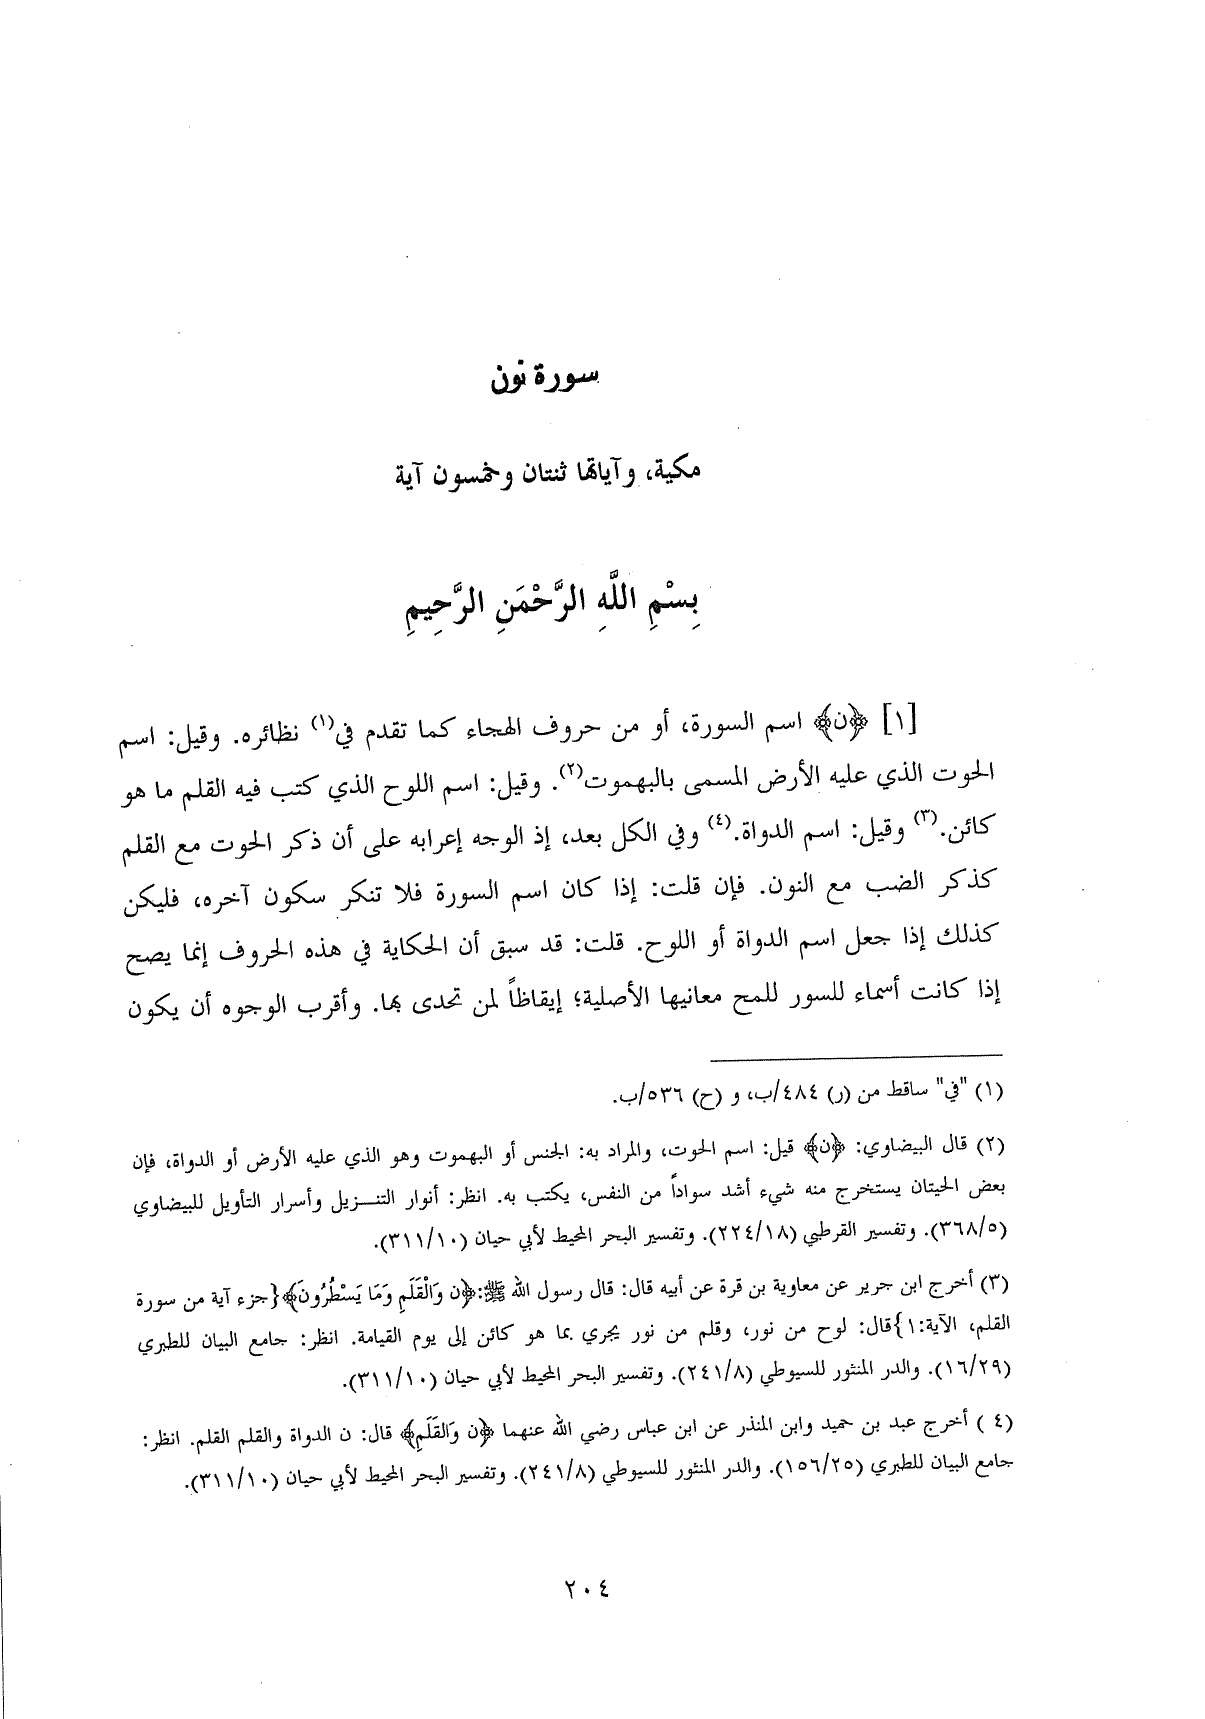 سورة نون
مكية، وآياتها ثنتان وخمسون آية
بِسْمِ اللَّهِ الرَّحْمَنِ الرَّحِيمِ
[١] ﴿ن﴾ اسم السورة، أو من حروف الهجاء كما تقدم في(١) نظائره. وقيل: اسم
الحوت الذي عليه الأرض المسمى بالبهموت(٢). وقيل: اسم اللوح الذي كتب فيه القلم ما هو
كائن.(٣) وقيل: اسم الدواة.(٤) وفي الكل بعد، إذ الوجه إعرابه على أن ذكر الحوت مع القلم
كذكر الضب مع النون. فإن قلت: إذا كان اسم السورة فلا تنكر سكون آخره، فليكن
كذلك إذا جعل اسم الدواة أو اللوح. قلت: قد سبق أن الحكاية في هذه الحروف إنما يصح
إذا كانت أسماء للسور للمح معانيها الأصلية؛ إيقاظاً لمن تحدى بها. وأقرب الوجوه أن يكون
(١) "في" ساقط من (ر) ٤٨٤/ب، و (ح) ٥٣٦/ب.
(٢) قال البيضاوي: ﴿ن﴾ قيل: اسم الحوت، والمراد به: الجنس أو البهموت وهو الذي عليه الأرض أو الدواة، فإن
بعض الحيتان يستخرج منه شيء أشد سواداً من النفس، يكتب به. انظر: أنوار التنـزيل وأسرار التأويل للبيضاوي
(٣٦٨/٥). وتفسير القرطبي (٢٢٤/١٨). وتفسير البحر المحيط لأبي حيان (٣١١/١٠).
(٣) أخرج ابن جرير عن معاوية بن قرة عن أبيه قال: قال رسول الله ﷺ:﴿ن وَالْقَلَمِ وَمَا يَسْطُرُونَ﴾{جزء آية من سورة
القلم، الآية:١}قال: لوح من نور، وقلم من نور يجري بما هو كائن إلى يوم القيامة. انظر: جامع البيان للطبري
(١٦/٢٩). والدر المنثور للسيوطي (٢٤١/٨). وتفسير البحر المحيط لأبي حيان (٣١١/١٠).
(٤ ) أخرج عبد بن حميد وابن المنذر عن ابن عباس رضي الله عنهما ﴿ن وَالقَلَمِ﴾ قال: ن الدواة والقلم القلم. انظر:
جامع البيان للطبري (١٥٦/٢٥). والدر المنثور للسيوطي (٢٤١/٨). وتفسير البحر المحيط لأبي حيان (٣١١/١٠).
٢٠٤